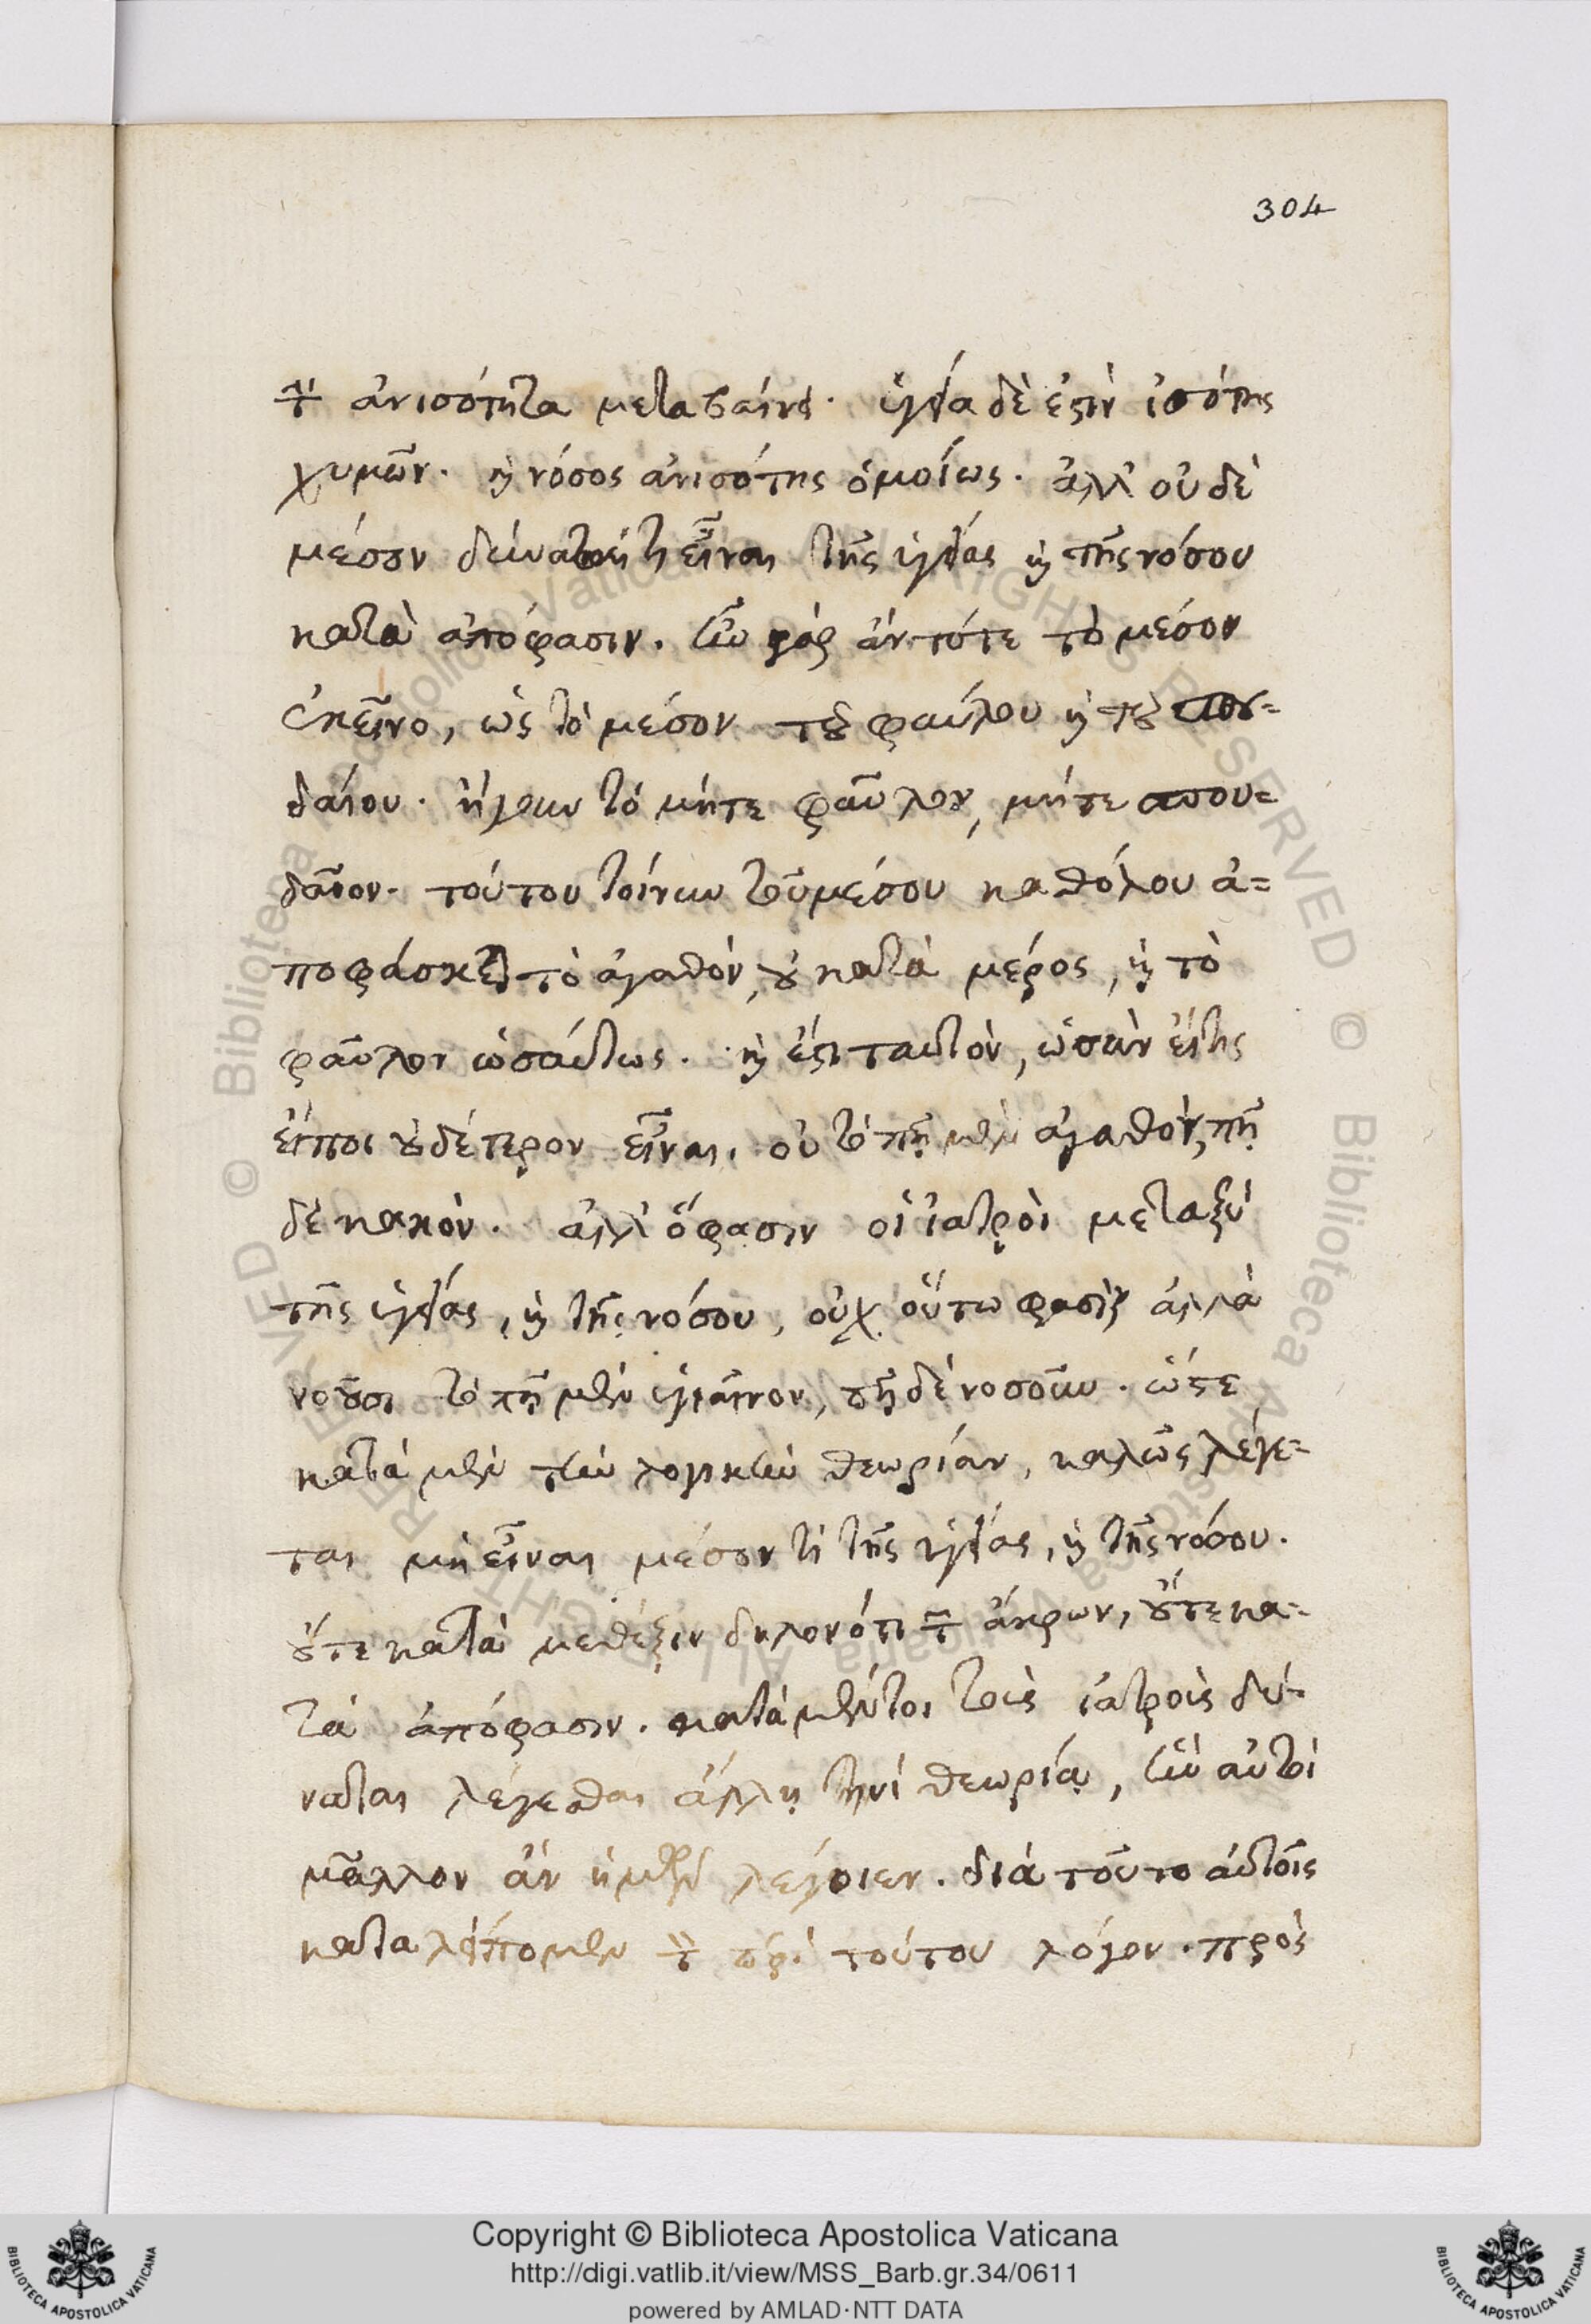 304
τὴν ἀνισότητα μεταβαίνει. ὑγεία δὲ ἐστὶν ἰσότης
χυμῶν. καὶ νόσος ἀνισότης ὁμοίως. ἀλλ' οὐδὲ
μέσον δύναται τὶ εἶναι τῆς ὑγείας καὶ τῆς νόσου
κατὰ ἀπόφασιν. ἦν γὰρ ἄν τότε τὸ μέσον
ἐκεῖνο, ὡς τὸ μέσον τοῦ φαύλου καὶ τοῦ σπου-
δαίου. ἤγουν τὸ μήτε φαῦλον, μήτε σπου-
δαῖον. τούτου τοίνυν τοῦ μέσου καθόλου ἀ-
ποφάσκεται τὸ ἀγαθόν, οὐ κατὰ μέρος, καὶ τὸ
φαῦλον ὡσαύτως. καὶ ἔστι ταυτὸν, ὡσὰν εἴ τις
εἴποι οὐδέτερον εἶναι. οὐ τὸ πῆ μὲν ἀγαθόν, πῆ
δὲ κακόν. ἀλλ' ὅ φασιν οἱ ἰατροὶ μεταξὺ
τῆς ὑγείας, καὶ τῆς νόσου, οὐχ οὕτω φασὶν ἀλλὰ
νοοῦσι τὸ πῆ μὲν ὑγιαῖνον, πῆ δὲ νοσοῦν. ὥστε
κατὰ μὲν τὴν λογικὴν θεωρίαν, καλῶς λέγε-
ται μὴ εἶναι μέσον τὶ τῆς ὑγείας, καὶ τῆς νόσου.
οὔτε κατὰ μέθεξιν δηλονότι τῶν ἄκρων, οὔτε κα-
τὰ ἀπόφασιν. κατὰ μέντοι τοὺς ἰατροὺς δύ-
ναται λέγεσθαι ἄλλῃ τινὶ θεωρίᾳ, ἣν αὐτοὶ
μᾶλλον ἂν ἡμῖν λέγοιεν. διὰ τοῦτο αὐτοῖς
καταλείπομεν τὸν περὶ τούτου λόγον. πρὸς
Copyright © Biblioteca Apostolica Vaticana
http://digi.vatlib.it/view/MSS_Barb.gr.34/0611
powered by AMLAD·NTT DATA